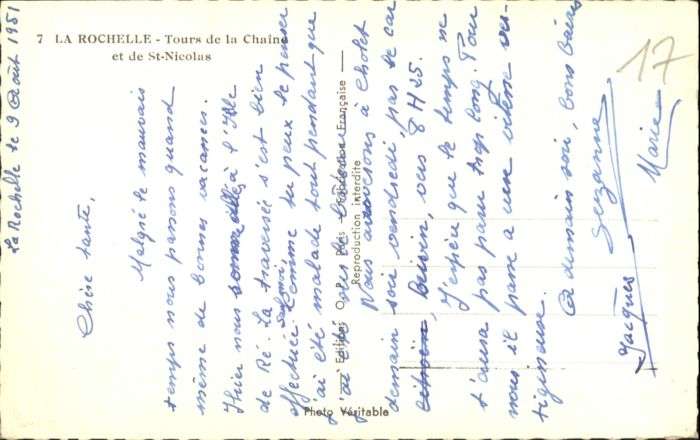 7 LA ROCHELLE - Tours de la Chaîne
et de St-Nicolas
17
La Rochelle le 9 Août 1951
Chère tante,
Malgré le mauvais
temps nous passons quand
même de bonnes vacances.
Hier nous sommes allés à l'Isle
de Ré. La traversée s'est bien
effectuée. Comme tu peux le penser
j'ai été malade tout pendant que
j'ai été sur le bateau.
Nous arriverons à Cholet
demain soir vendredi, par le car
citroën, Brivin, vers 8 H 25.
J'espère que le temps ne
t'aura pas paru trop long. Pour
nous il passe a une vitesse ver-
tigineuse.
A demain soir, bons baisers
Suzanne
Jacques
Marie
Editions Paris Fabrication Française
Reproduction interdite
Photo Véritable